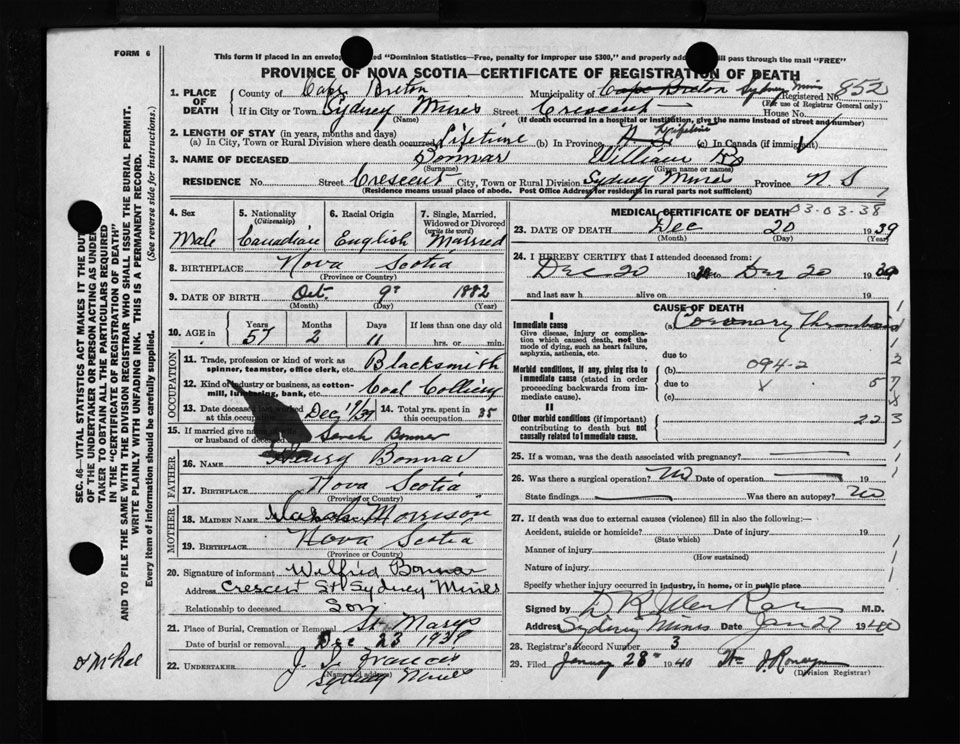 FORM 6
This form if placed in an "Dominion Statistics—Free, penalty for improper use $300," and properly pass through the mail "FREE"
PROVINCE OF NOVA SCOTIA—CERTIFICATE OF REGISTRATION OF DEATH
1. PLACE OF DEATH County of Cape Breton Municipality of Cape Breton Sydney Mines Registered No. 852
(For use of Registrar General only)
If in City or Town Sydney Mines Street Crescent House No.
(Name) (If death occurred in a hospital or institution, give the name instead of street and number)
2. LENGTH OF STAY (in years, months and days)
(a) In City, Town or Rural Division where death occurred Lifetime (b) In Province N. S. Lifetime (c) In Canada (if immigrant)
3. NAME OF DECEASED Bonnar William
(Surname) (Given name or names)
RESIDENCE No. Street Crescent City, Town or Rural Division Sydney Mines Province N. S
(Residence means usual place of abode. Post Office Address for residents in rural parts not sufficient)
4. Sex Male
5. Nationality (Citizenship) Canadian
6. Racial Origin English
7. Single, Married, Widowed or Divorced (write the word) Married
8. BIRTHPLACE Nova Scotia
(Province or Country)
9. DATE OF BIRTH Oct. 9 1882
(Month) (Day) (Year)
10. AGE in Years 57 Months 2 Days 11 If less than one day old
hrs. or min.
OCCUPATION
11. Trade, profession or kind of work as spinner, teamster, office clerk, etc. Blacksmith
12. Kind of industry or business, as cotton-mill, lumbering, bank, etc. Coal Colliery
13. Date deceased last worked at this occupation Dec 19/39 14. Total yrs. spent in this occupation 35
15. If married give name of or husband of deceased Sarah Bonnar
FATHER
16. NAME Henry Bonnar
17. BIRTHPLACE Nova Scotia
(Province or Country)
MOTHER
18. MAIDEN NAME Sarah Morrison
19. BIRTHPLACE Nova Scotia
(Province or Country)
20. Signature of informant Wilfred Bonnar
Address Crescent St Sydney Mines
Relationship to deceased Son
21. Place of Burial, Cremation or Removal St. Marys
Date of burial or removal Dec 23 1939
22. UNDERTAKER J. Francis
(Name and address)
Sydney Mines
MEDICAL CERTIFICATE OF DEATH 03-03-38
23. DATE OF DEATH Dec 20 1939
(Month) (Day) (Year)
24. I HEREBY CERTIFY that I attended deceased from:
Dec 20 19 39 to Dec 20 19 39
and last saw h alive on 19
CAUSE OF DEATH
I
Immediate cause (a) Coronary Thrombosis
Give disease, injury or complication which caused death, not the mode of dying, such as heart failure, asphyxia, asthenia, etc.
due to
Morbid conditions, if any, giving rise to immediate cause (stated in order proceeding backwards from immediate cause). (b) 094-2
due to 5
(c)
II
Other morbid conditions (if important) contributing to death but not causally related to I immediate cause. 22
25. If a woman, was the death associated with pregnancy?
26. Was there a surgical operation? No Date of operation 19
State findings Was there an autopsy? No
27. If death was due to external causes (violence) fill in also the following:—
Accident, suicide or homicide? Date of injury 19
(State which)
Manner of injury
(How sustained)
Nature of injury
Specify whether injury occurred in industry, in home, or in public place
Signed by M.D.
Address Sydney Mines Date Jan 27 1940
28. Registrar's Record Number 3
29. Filed January 28th 1940
(Division Registrar)
SEC. 46—VITAL STATISTICS ACT MAKES IT THE DUTY
OF THE UNDERTAKER OR PERSON ACTING AS UNDERTAKER TO OBTAIN ALL THE PARTICULARS REQUIRED
IN THE "CERTIFICATE OF REGISTRATION OF DEATH"
AND TO FILE THE SAME WITH THE DIVISION REGISTRAR WHO SHALL ISSUE THE BURIAL PERMIT.
WRITE PLAINLY WITH UNFADING INK. THIS IS A PERMANENT RECORD.
Every item of information should be carefully supplied. (See reverse side for instructions.)